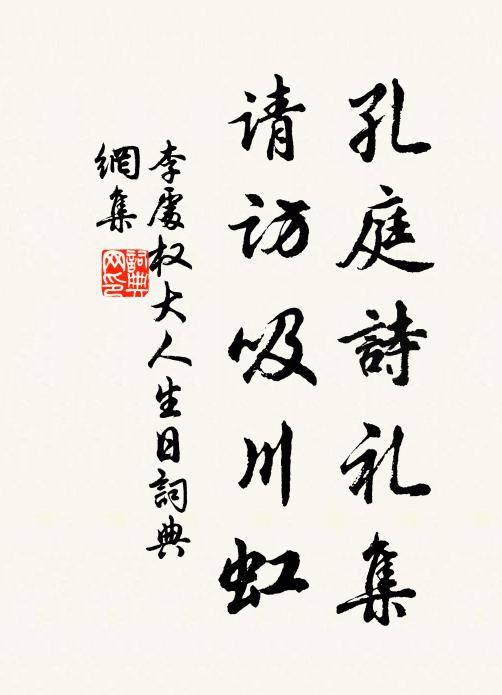 孔庭詩礼集
请访吸川虹
李處权大人生日詞典
網集
詞典
网印